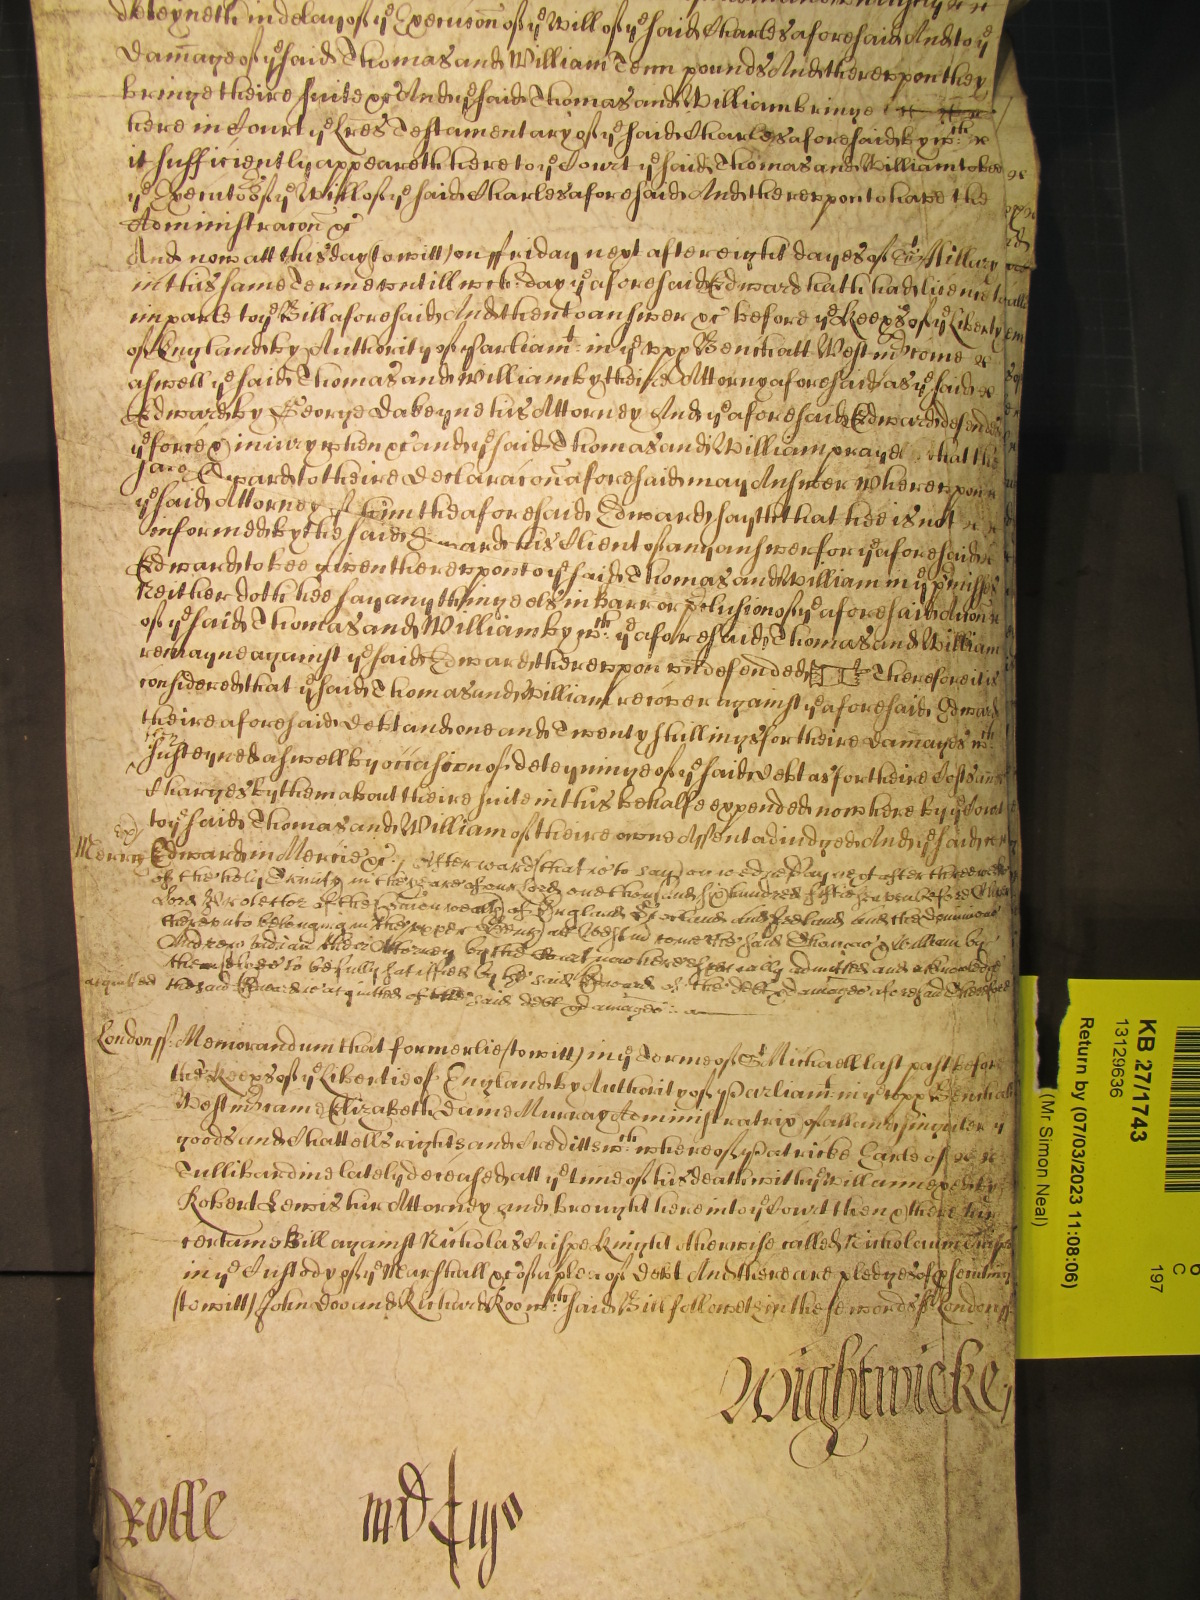 deteyneth in delay of ye Execucon of ye Will of ye said Charles aforesaid And to ye
Damage of ye said Thomas and William Tenn pounds And therevppon they
bringe theire suite &c And ye said Thomas and William bringe
here in Court ye Lres Testamentary of ye said Charles aforesaid by wch
it sufficiently appeareth here to ye Court ye said Thomas and William to bee
ye Executors of ye Will of ye said Charles aforesaid And therevppon to have the
Administracon &c
And now att this day (to witt) on ffriday next after eight dayes of St Hillary
in this same Terme vntill wch day ye aforesaid Edward hath had licence to
imparle to ye Bill aforesaid And then to answer &c before ye Keeps of ye Liberty
of England by Authority of Parliamt in ye vpp Bench att Westmr come
aswell ye said Thomas and William by theire Attorny aforesaid as ye said
Edward by George Dabeyne his Attorney And ye aforesaid Edward defendes
ye force & iniury when &c and ye said Thomas and William praye that the
said Edward to theire Declaracon aforesaid may Answer Wherevppon
ye said Attorney of him the aforesaid Edward sayth that hee is not
informed by the said Edward his Client of any answer for ye aforesaid
Edward to bee given therevppon to ye said Thomas and William in ye pmisss
Neither doth hee say any thinge els in barr or pclusion of ye aforesaid Accon
of ye said Thomas and William by wch ye aforesaid Thomas and William
remayne against ye said Edward therevppon vndefended Therefore it is
considered that ye said Thomas and William recover against ye aforesaid Edward
theire aforesaid debt and one and Twenty shillings for theire damages wch
they
susteyned aswell by occasion of deteyninge of ye said debt as for theire Costs and
Charges by them about theire suite in this behalfe expended now here by ye Court
to ye said Thomas and William of theire owne Assent adiudged And ye said
Mercy Edward in Mercie &c Afterwards (that is to say) on wednesday next after three weekes
of the holy Trinity in the yeare of our Lord one thousand six hundred fiftie seven before Oliver
Lord Protector of the Comonwealth of England Scotland and Ireland and the Dominions
therevnto belonging in the vpper Bench att Westmr come the said Thomas & William by
Andrew Indian their Attorney by the Court now here specially admitted and acknowledge
themselves to be fully satisfied by the said Edward of the debt & damages aforesaid Therefore
acquitted the said Edward is acquitted of the said debt & damages
London ss: Memorandum that formerlie (to witt) in ye Terme of St Michaell last past before
the Keeps of ye Libertie of England by Authority of Parliamt in ye vpp Bench att
Westmr came Elizabeth Dame Murray Administratrix of all and singuler ye
goods and Chattells rights and Creditts wch were of Patricke Earle of
Tullibardine lately deceased att ye tyme of his death with ye will annexed by
Robert Lewis her Attorney and brought here into ye Court then & there her
certaine Bill against Nicholas Crispe Knight otherwise called Nicholaum Crispe
in ye Custody of ye Marshall &c of a plea of Debt And there are pledges of psecuting
(to witt) John Doo and Richard Roo wch said Bill followeth in these words ss London ss
Wightwicke
Rolle
KB 27/1743
13129636
Return by (07/03/2023 11:08:06)
(Mr Simon Neal)
C
197